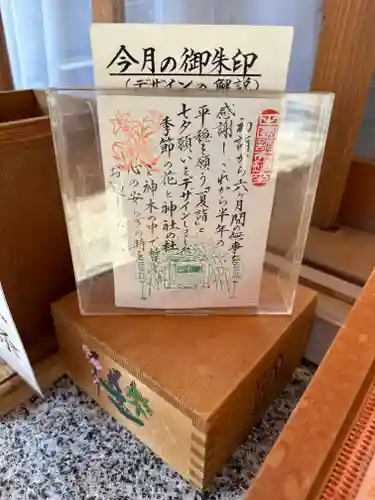 今月の御朱印
(デザインの解説)
初詣から六ヶ月間の無事を
感謝し、これから半年の
平穏を願う「夏詣」と
七夕の願いをデザインしました
季節の花と神社の社
神木の中で
心の安らぎの時を